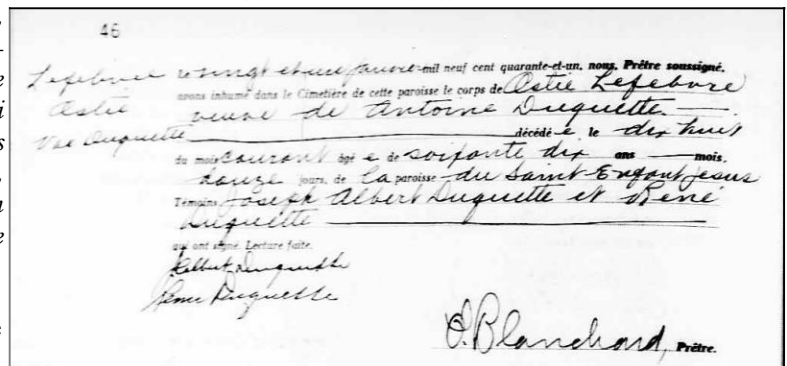 46
Lefebvre Le vingt et un janvier mil neuf cent quarante-et-un, nous, Prêtre soussigné,
Ostie avons inhumé dans le Cimetière de cette paroisse le corps de Ostie Lefebvre
Vve Duquette veuve de Antoine Duquette.
décédé e le dix huit
du mois courant âgé e de soifante dix ans mois.
douze jours, de la paroisse du Saint Enfant Jesus
Témoins Joseph Albert Duquette et René
Duquette
qui ont signé. Lecture faite.
Albert Duquette
René Duquette
O. Blanchard, Prêtre.